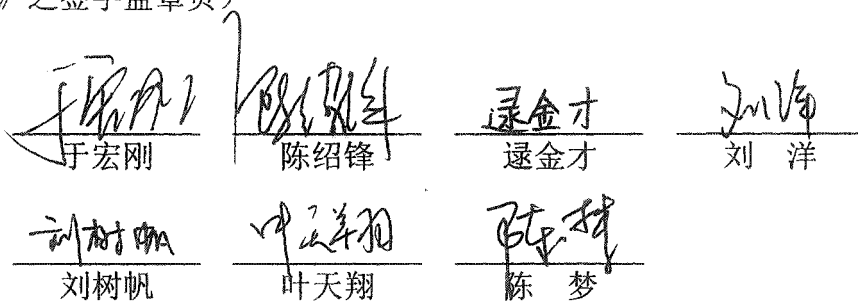 》之签字盖章页）
于宏刚 陈绍锋 逯金才 刘洋
于宏刚 陈绍锋 逯金才 刘 洋
刘树帆 叶天翔 陈梦
刘树帆 叶天翔 陈 梦